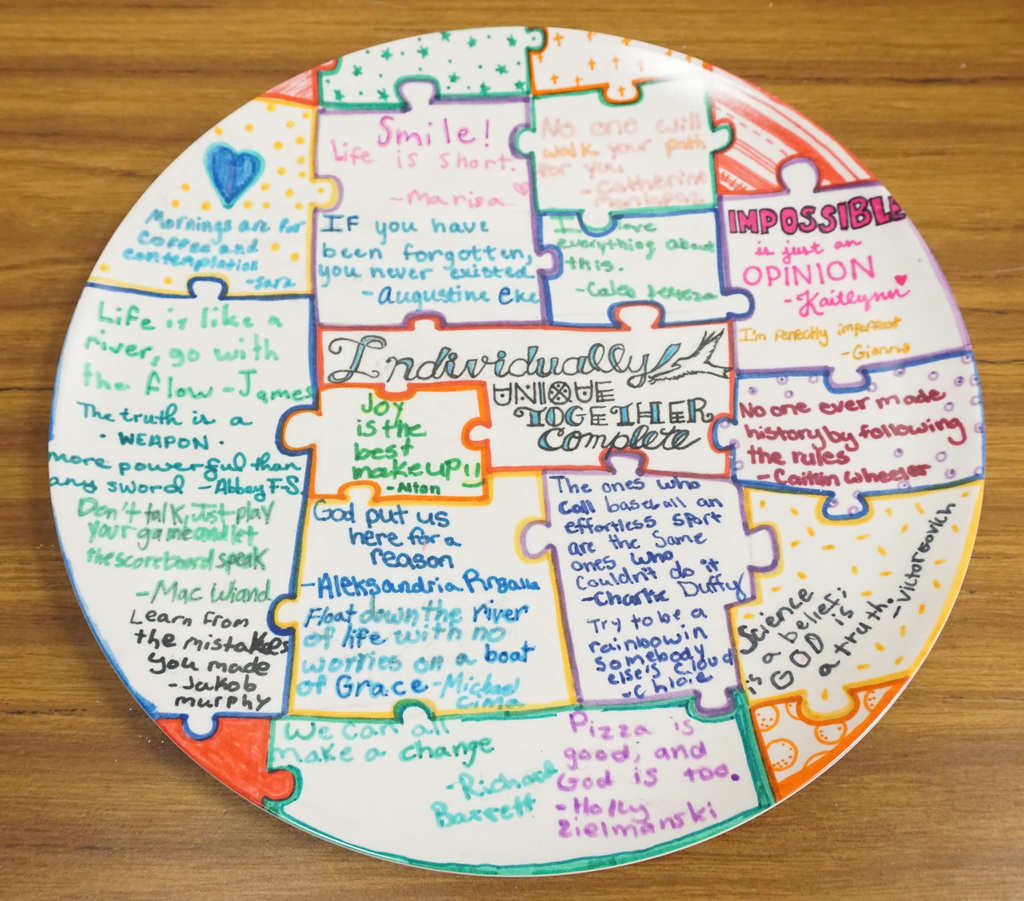 Smile!
Life is short.
- Marisa
No one will
walk your path
for you
- Catherine
Mornings are for
coffee and
contemplation
- Sara
IF you have
been forgotten,
you never existed
- Augustine Eke
everything about
this.
- Caleb
IMPOSSIBLE
is just an
OPINION
- Kaitlynn
I'm Perfectly imperfect
- Gianna
Life is like a
river, go with
the flow - James
The truth is a
· WEAPON ·
more powerful than
any sword - Abbey F.S
Don't talk, Just play
your game and let
the scoreboard speak
- Mac Wiand
Learn from
the mistakes
you made
- Jakob
murphy
Individually
UNIQUE
TOGETHER
Complete
Joy
is the
best
makeup!!
- Alton
No one ever made
history by following
the rules
- Caitlin Wheeler
God put us
here for a
reason
- Aleksandria
Float down the river
of life with no
worries on a boat
of Grace - Michael
Cima
The ones who
call baseball an
effortless sport
are the same
ones who
couldn't do it
- Charlie Duffy
Try to be a
rainbow in
Somebody
else's cloud
- Chloie
Science
is a belief;
GOD is
a truth.
- Victor Bovich
We can all
make a change
- Richard
Barrett
Pizza is
good, and
God is too.
- Holly
Zielmanski